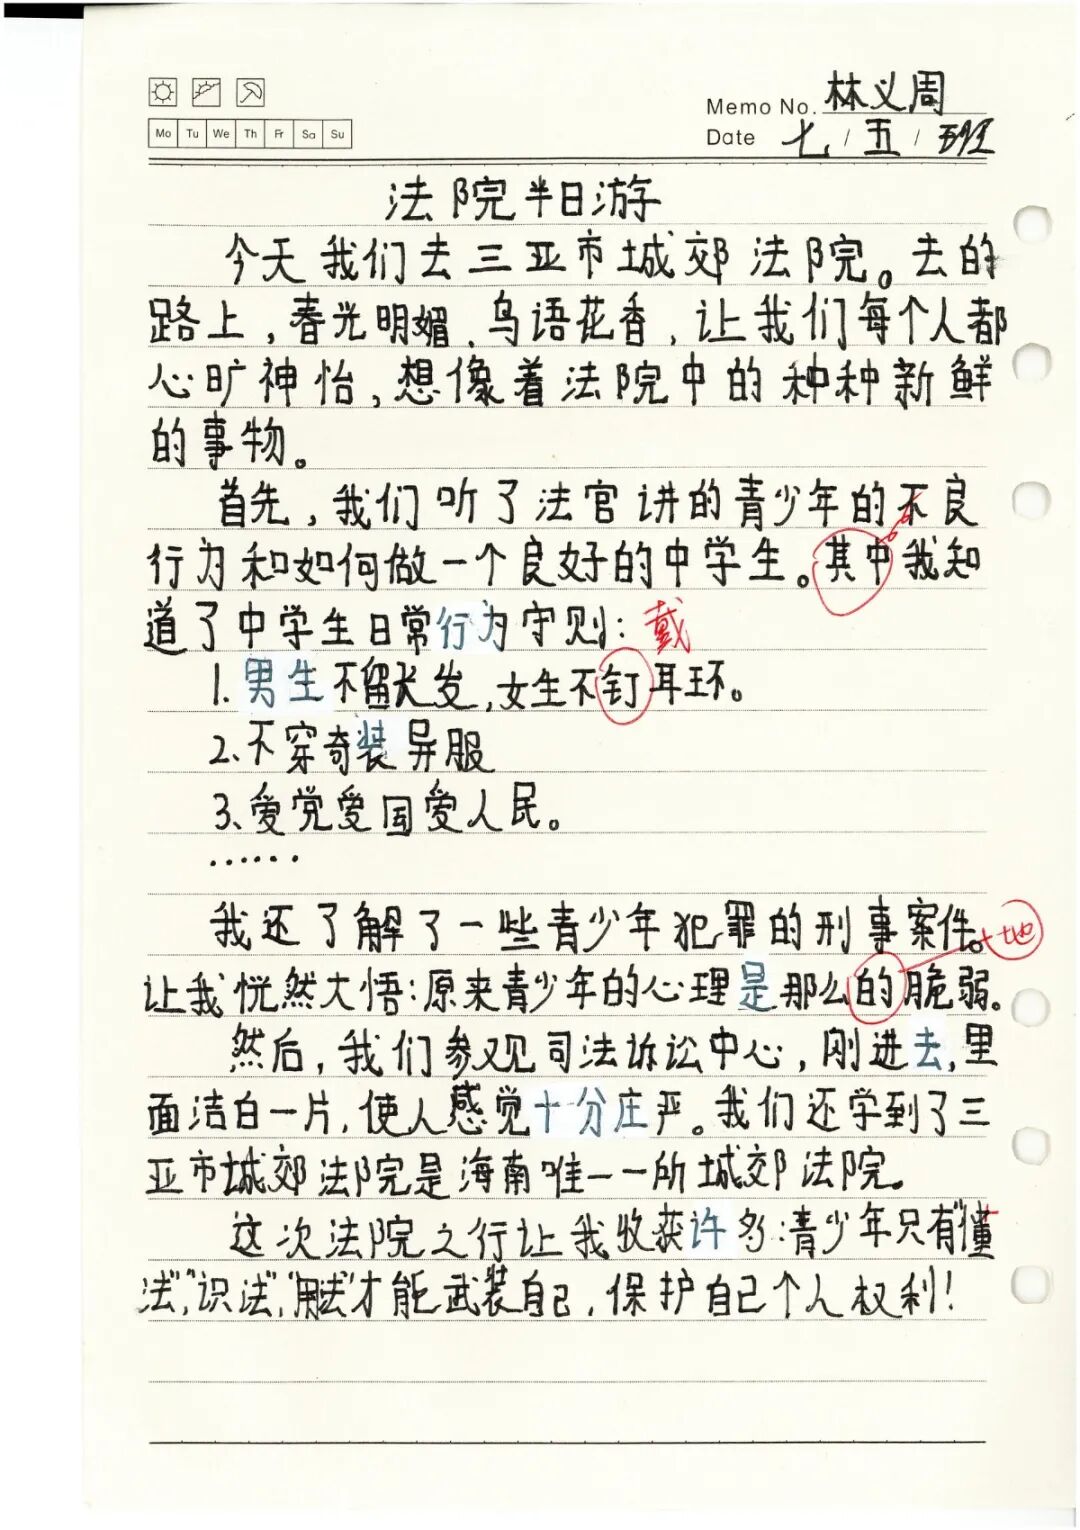 Memo No. 林义周
Mo Tu We Th Fr Sa Su
Date 七 / 五 / 班
法院半日游
今天我们去三亚市城郊法院。去的
路上，春光明媚、鸟语花香，让我们每个人都
心旷神怡，想像着法院中的种种新鲜
的事物。
首先，我们听了法官讲的青少年的不良
行为和如何做一个良好的中学生。其中我知
道了中学生日常行为守则：戴
1.男生不留长发，女生不钉耳环。
2、不穿奇装异服
3、爱党爱国爱人民。
……
我还了解了一些青少年犯罪的刑事案件。地
让我恍然大悟：原来青少年的心理是那么的脆弱。
然后，我们参观司法诉讼中心，刚进去，里
面洁白一片，使人感觉十分庄严。我们还学到了三
亚市城郊法院是海南唯一一所城郊法院。
这次法院之行让我收获许多：青少年只有"懂
法"，"识法"，"用法"才能武装自己，保护自己个人权利！